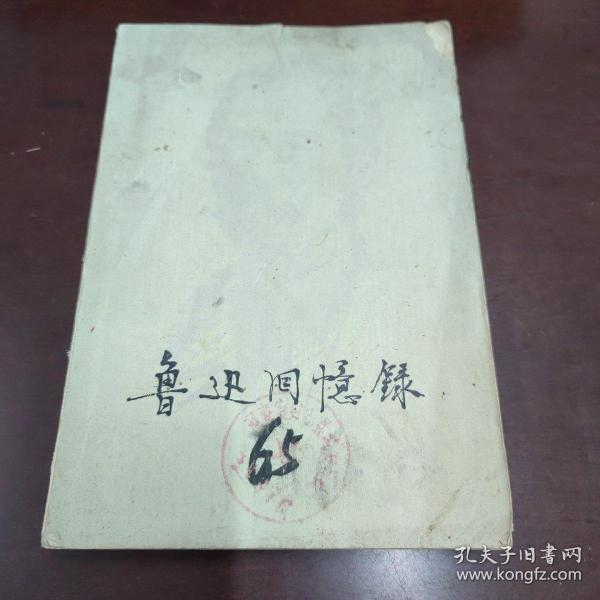 鲁迅回憶録
65
孔夫子旧书网
www.kongfz.com